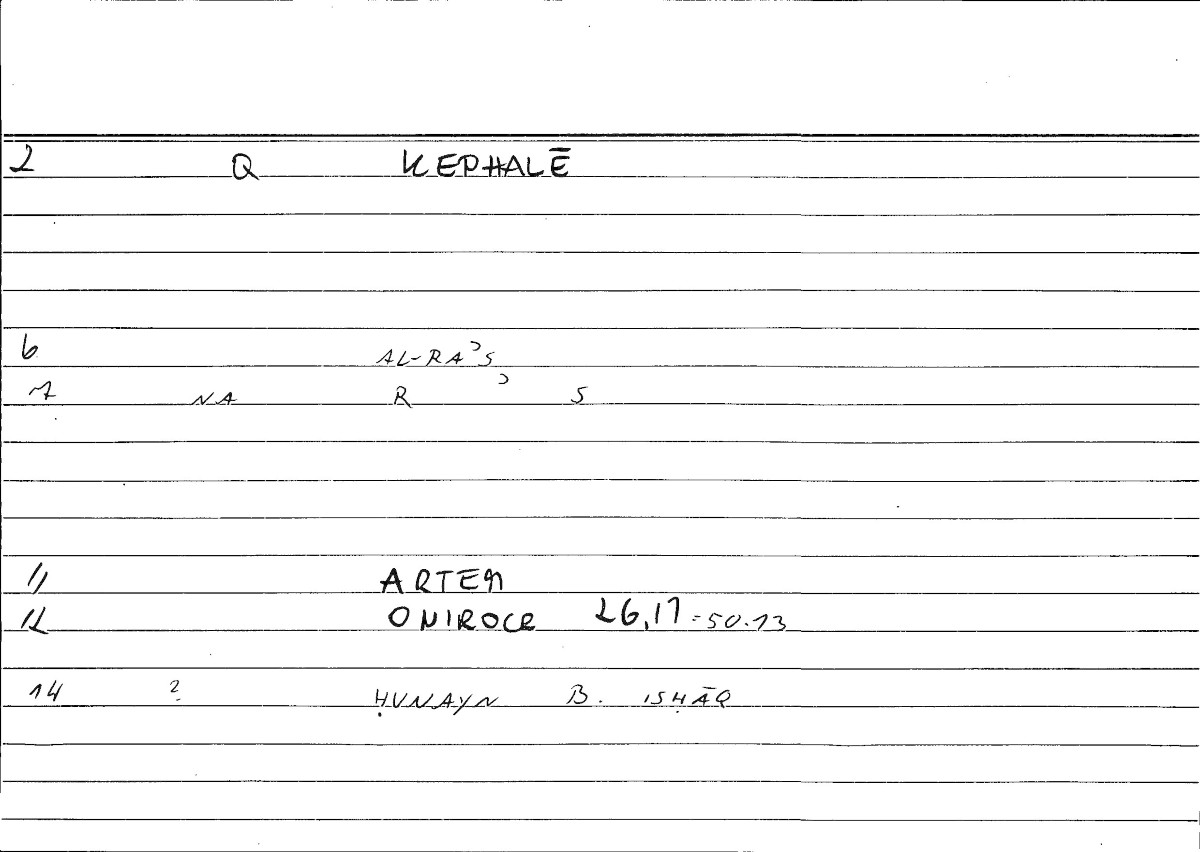 2 Q KEPHALĒ
6 AL-RAʾS
7 NA R ʾ S
11 ARTEM
12 ONIROCR 26,17 = 50.13
14 ? ḤUNAYN B. ISḤĀQ